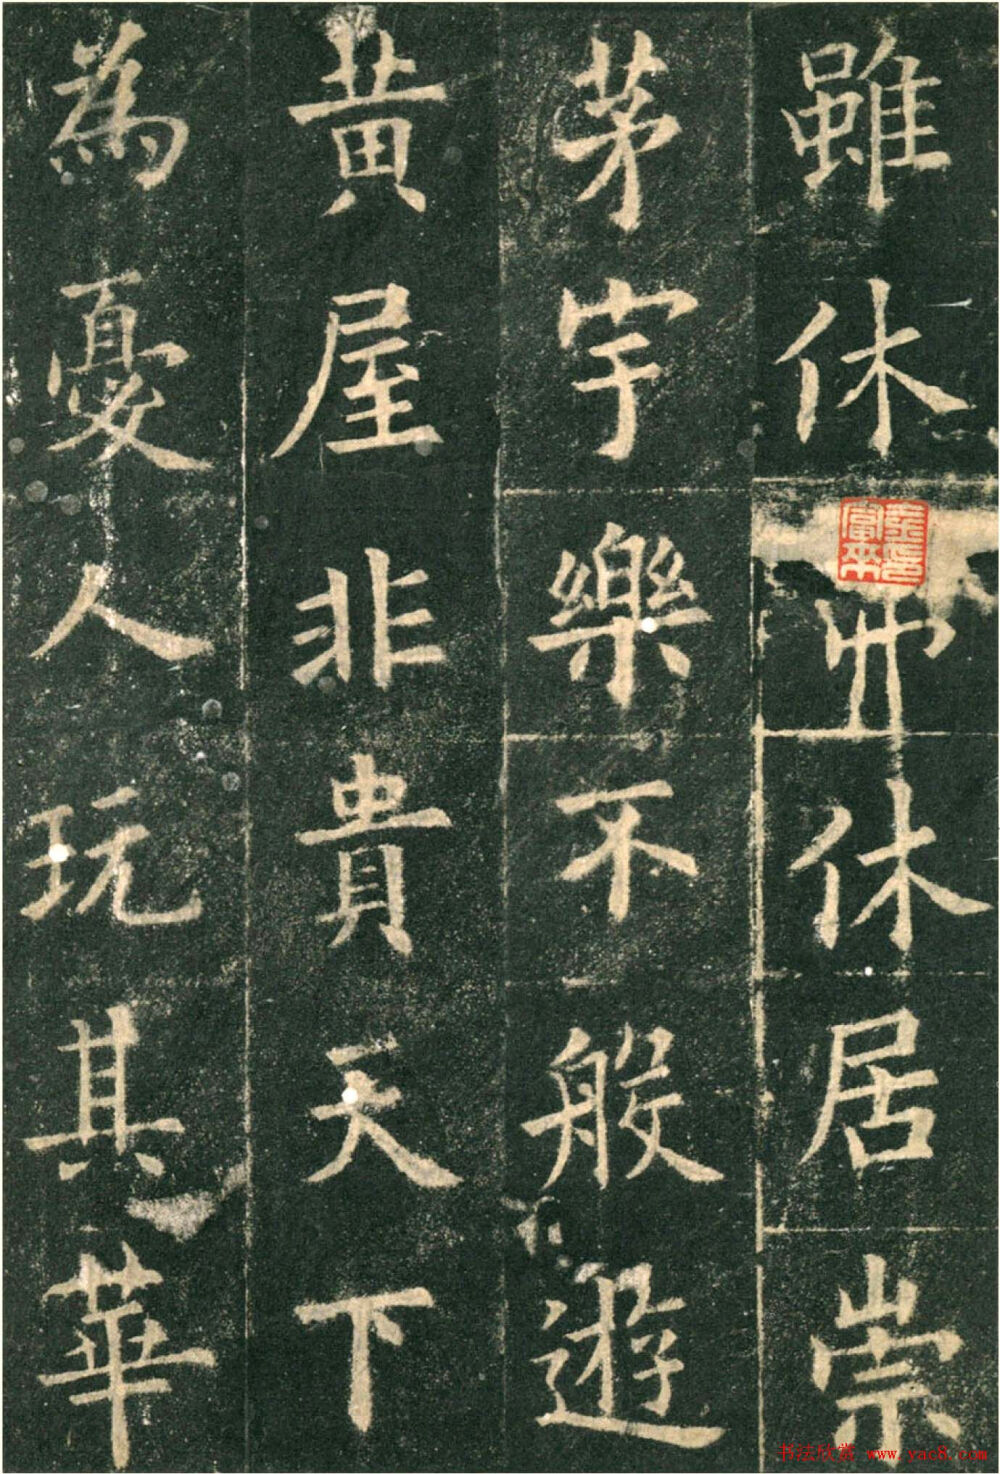 雖休世休居崇
茅宇樂不般遊
黃屋非貴天下
為憂人玩其華
书法欣赏 www.yac8.com